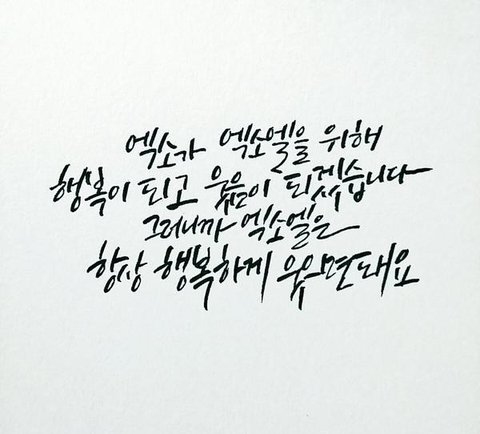 엑소가 엑소엘을 위해
행복이 되고 웃음이 되겠습니다
그러니까 엑소엘은
항상 행복하게 웃으면돼요